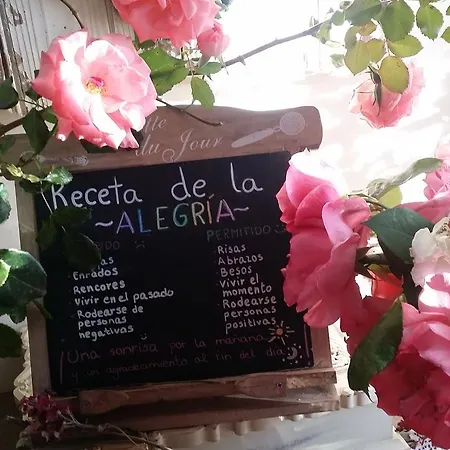 du Jour
Receta de la
~ALEGRÍA~
PERMITIDO
Enfados
Rencores
Vivir en el pasado
Rodearse de
personas
negativas
Risas
Abrazos
Besos
Vivir el
momento
Rodearse
personas
positivas
Una sonrisa por la mañana
y un agradecimiento al fin del día